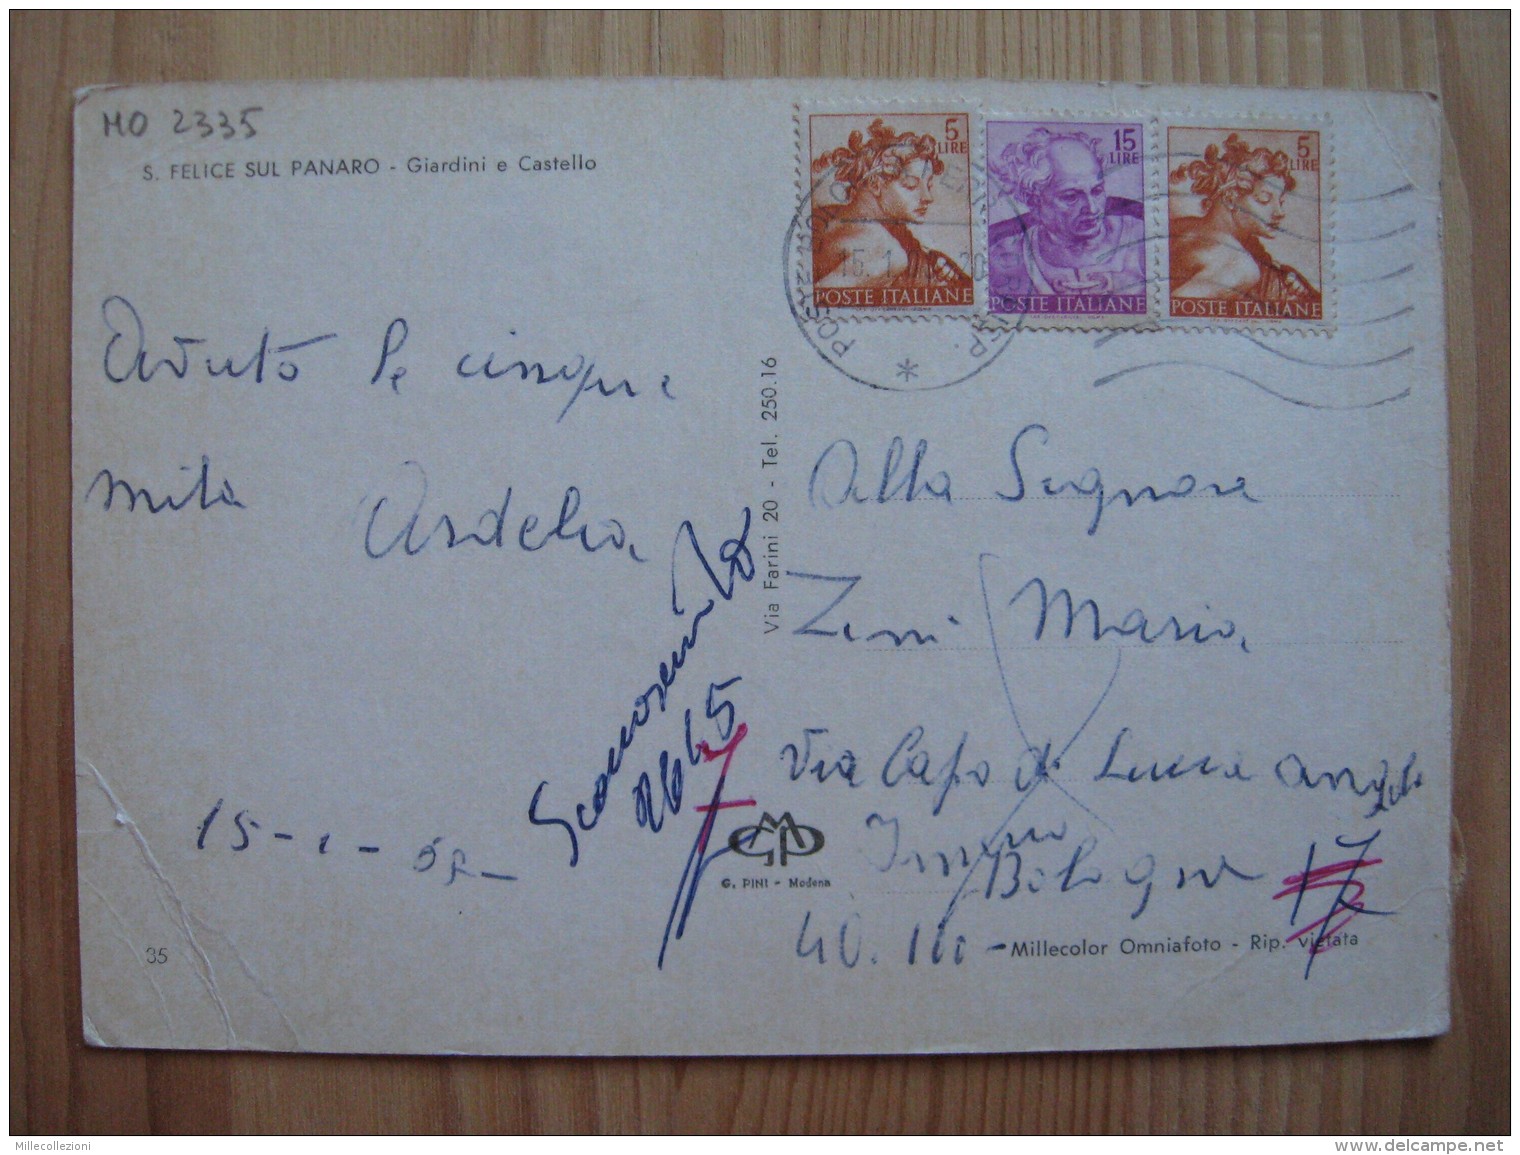 MO 2335
S. FELICE SUL PANARO - Giardini e Castello
5 LIRE
POSTE ITALIANE
15 LIRE
POSTE ITALIANE
5 LIRE
POSTE ITALIANE
15. 1
Avuto le cinque
mila Ardelia
15-1-
2665
35
Via Farini 20 - Tel. 250.16
G. PINI - Modena
Alla Signora
Zeni Maria
Via Capo di Lucca
Bologna 17
40.
Millecolor Omniafoto - Rip. vietata
Millecollezioni
www.delcampe.net